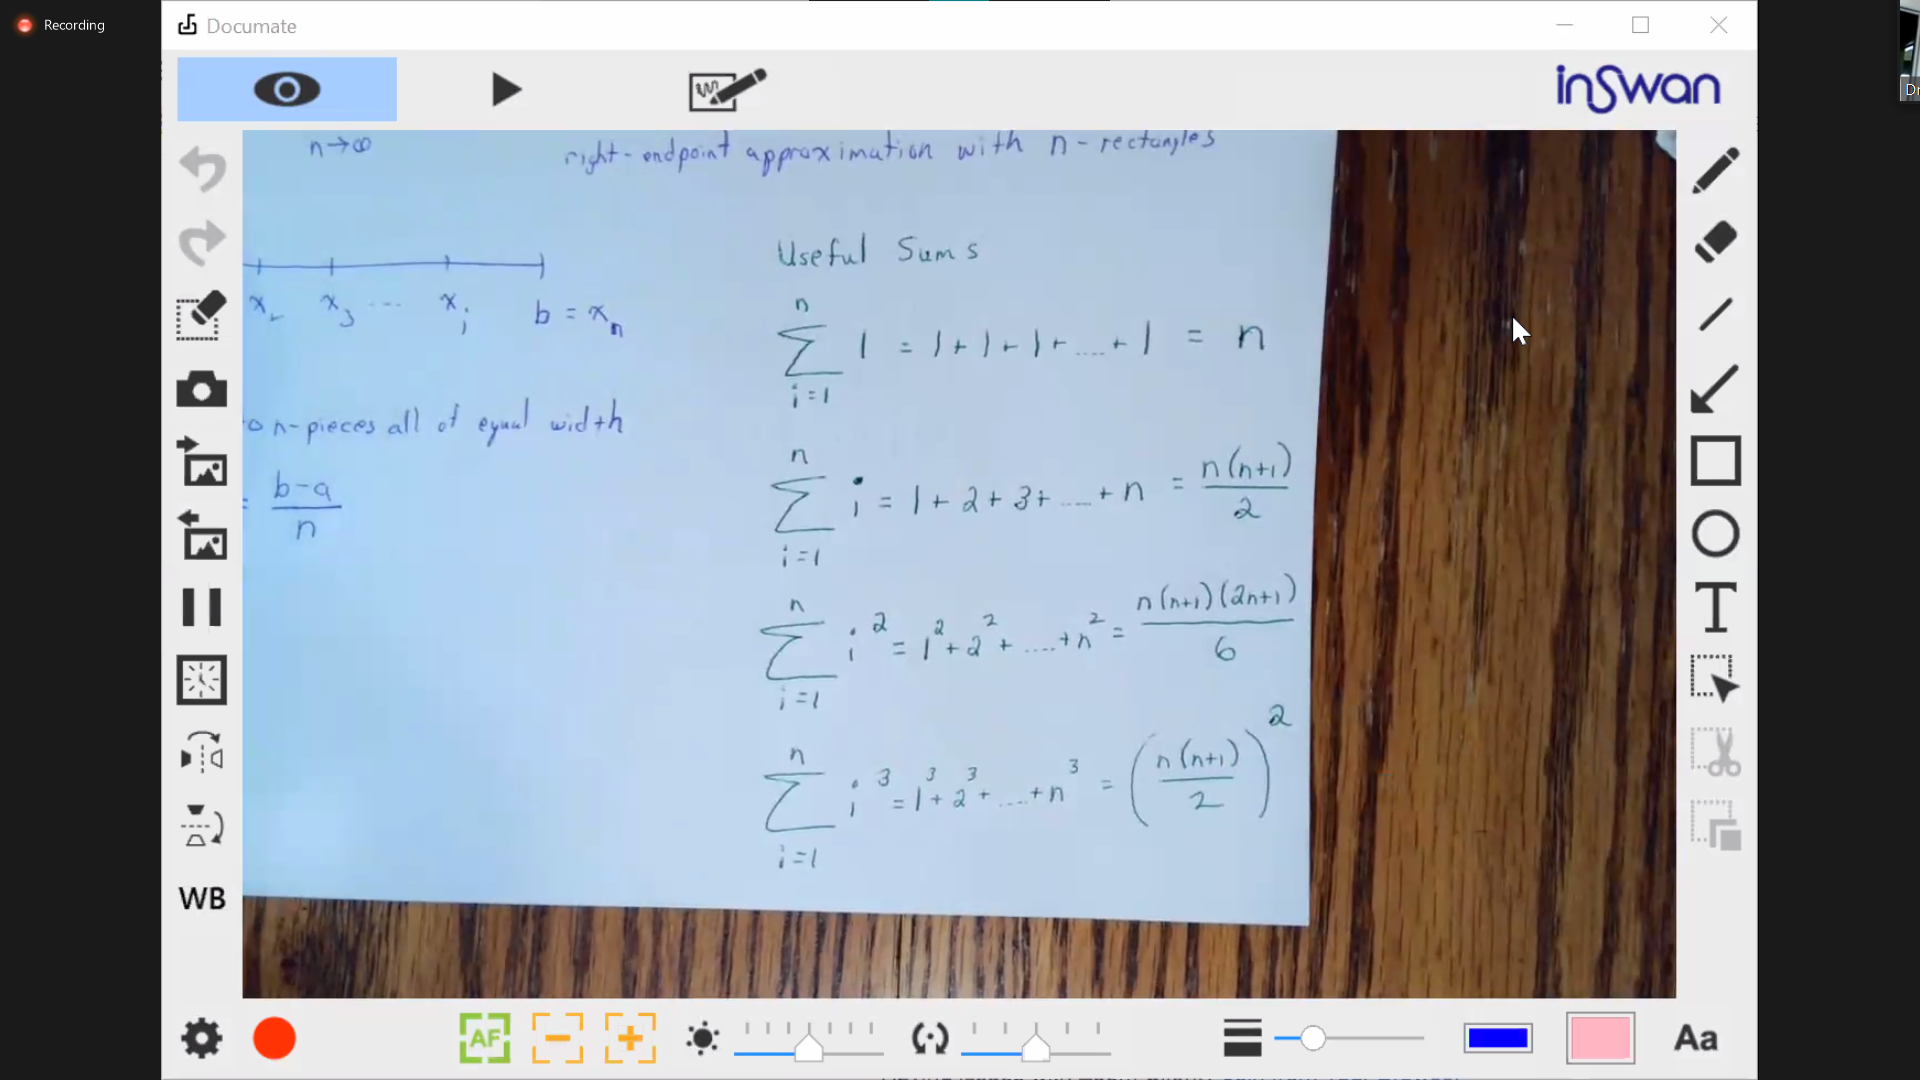 Recording
Documate
inswan
Dr
n→∞
right-endpoint approximation with n-rectangles
x₂ x₃ .... xᵢ b = xₙ
n-pieces all of equal width
= (b-a)/n
Useful Sums
∑_{i=1}^{n} 1 = 1+1+1+....+1 = n
∑_{i=1}^{n} i = 1+2+3+....+n = n(n+1)/2
∑_{i=1}^{n} i² = 1²+2²+....+n² = n(n+1)(2n+1)/6
∑_{i=1}^{n} i³ = 1³+2³+....+n³ = (n(n+1)/2)²
T
WB
AF
Aa